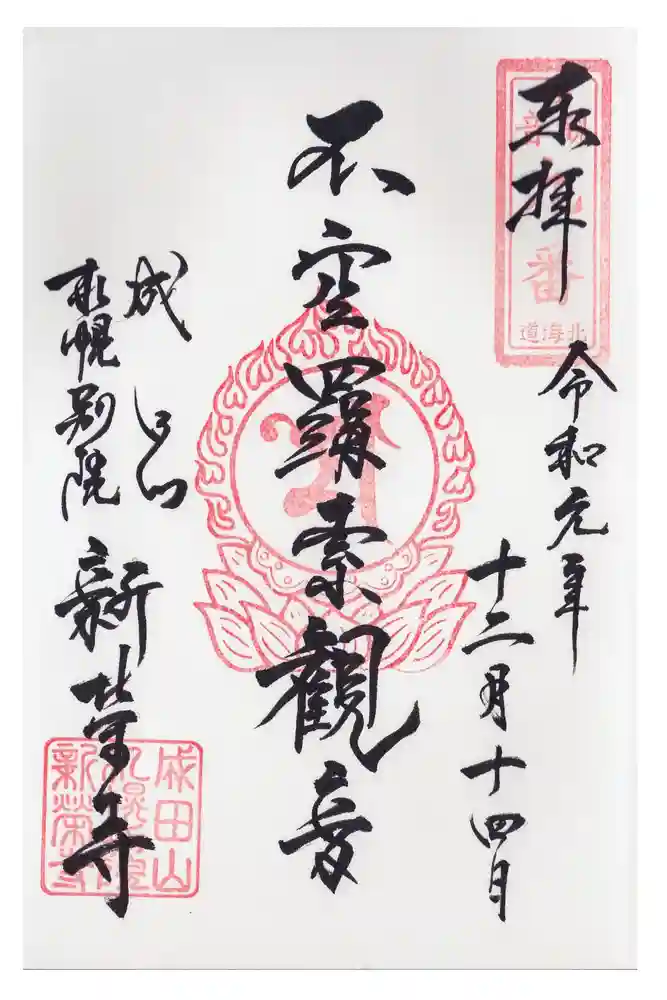 奉拝
番
北海道
令和元年
十二月十四日
不空羂索觀音
成田山
札幌別院
新榮寺
成田山
札幌別院
新榮寺